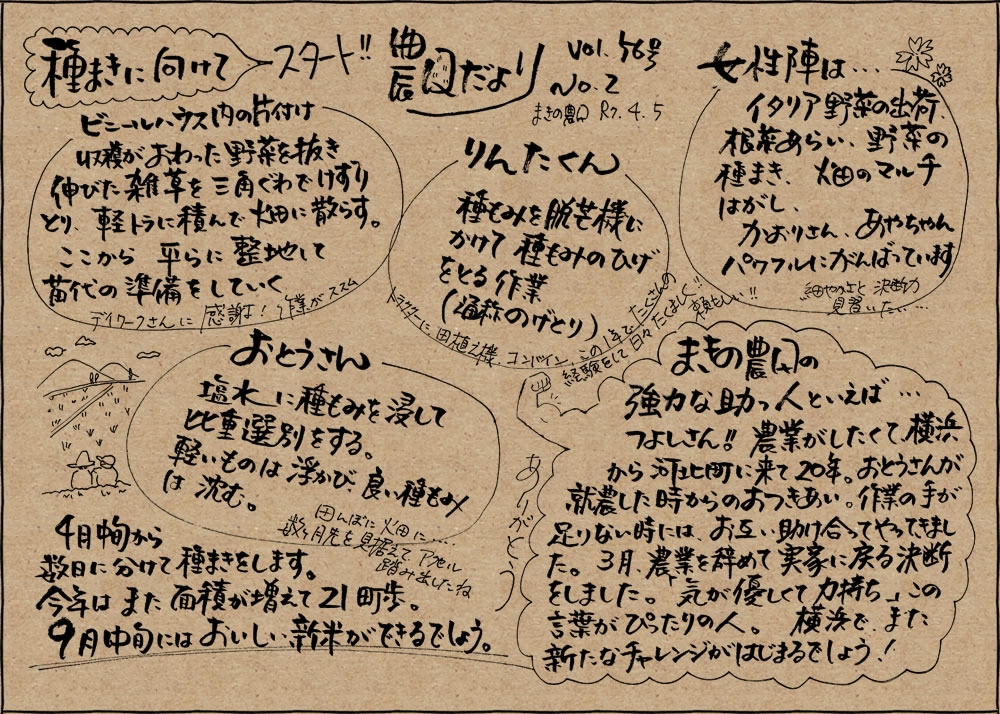 種まきに向けて スタート!!
ビニールハウス内の片付け
収穫がおわった野菜を抜き
伸びた雑草を三角ぐわでけずり
とり、軽トラに積んで畑に散らす。
ここから 平らに整地して
苗代の準備をしていく
デイワークさんに感謝!作業がススム
農園だより
Vol.56号
No.2
まきの農園 R7.4.5
りんたくん
種もみを脱芒機に
かけて種もみのひげ
をとる作業
(通称のげとり)
トラクターに、田植え機、コンバイン、この1年でたくさんの
経験をして日々たくましく頼もしい!!
女性陣は…
イタリア野菜の出荷、
根菜あらい、野菜の
種まき、畑のマルチ
はがし、
かおりさん、あやちゃん
パワフルにがんばっています
細やかさと決断力
見習いたい…
おとうさん
塩水に種もみを浸して
比重選別をする。
軽いものは浮かび、良い種もみ
は沈む。
田んぼに畑に…
数ヶ月先を見据えて、アクセル
踏み出したね
4月中旬から
数日に分けて種まきをします。
今年はまた面積が増えて21町歩。
9月中旬にはおいしい新米ができるでしょう。
ありがとう
まきの農園の
強力な助っ人といえば…
つよしさん!! 農業がしたくて、横浜
から河北町に来て20年。おとうさんが
就農した時からのおつきあい。作業の手が
足りない時には、お互い助け合ってやってきまし
た。3月、農業を辞めて実家に戻る決断
をしました。「気が優しくて力持ち」この
言葉がぴったりの人。 横浜で、また
新たなチャレンジがはじまるでしょう!